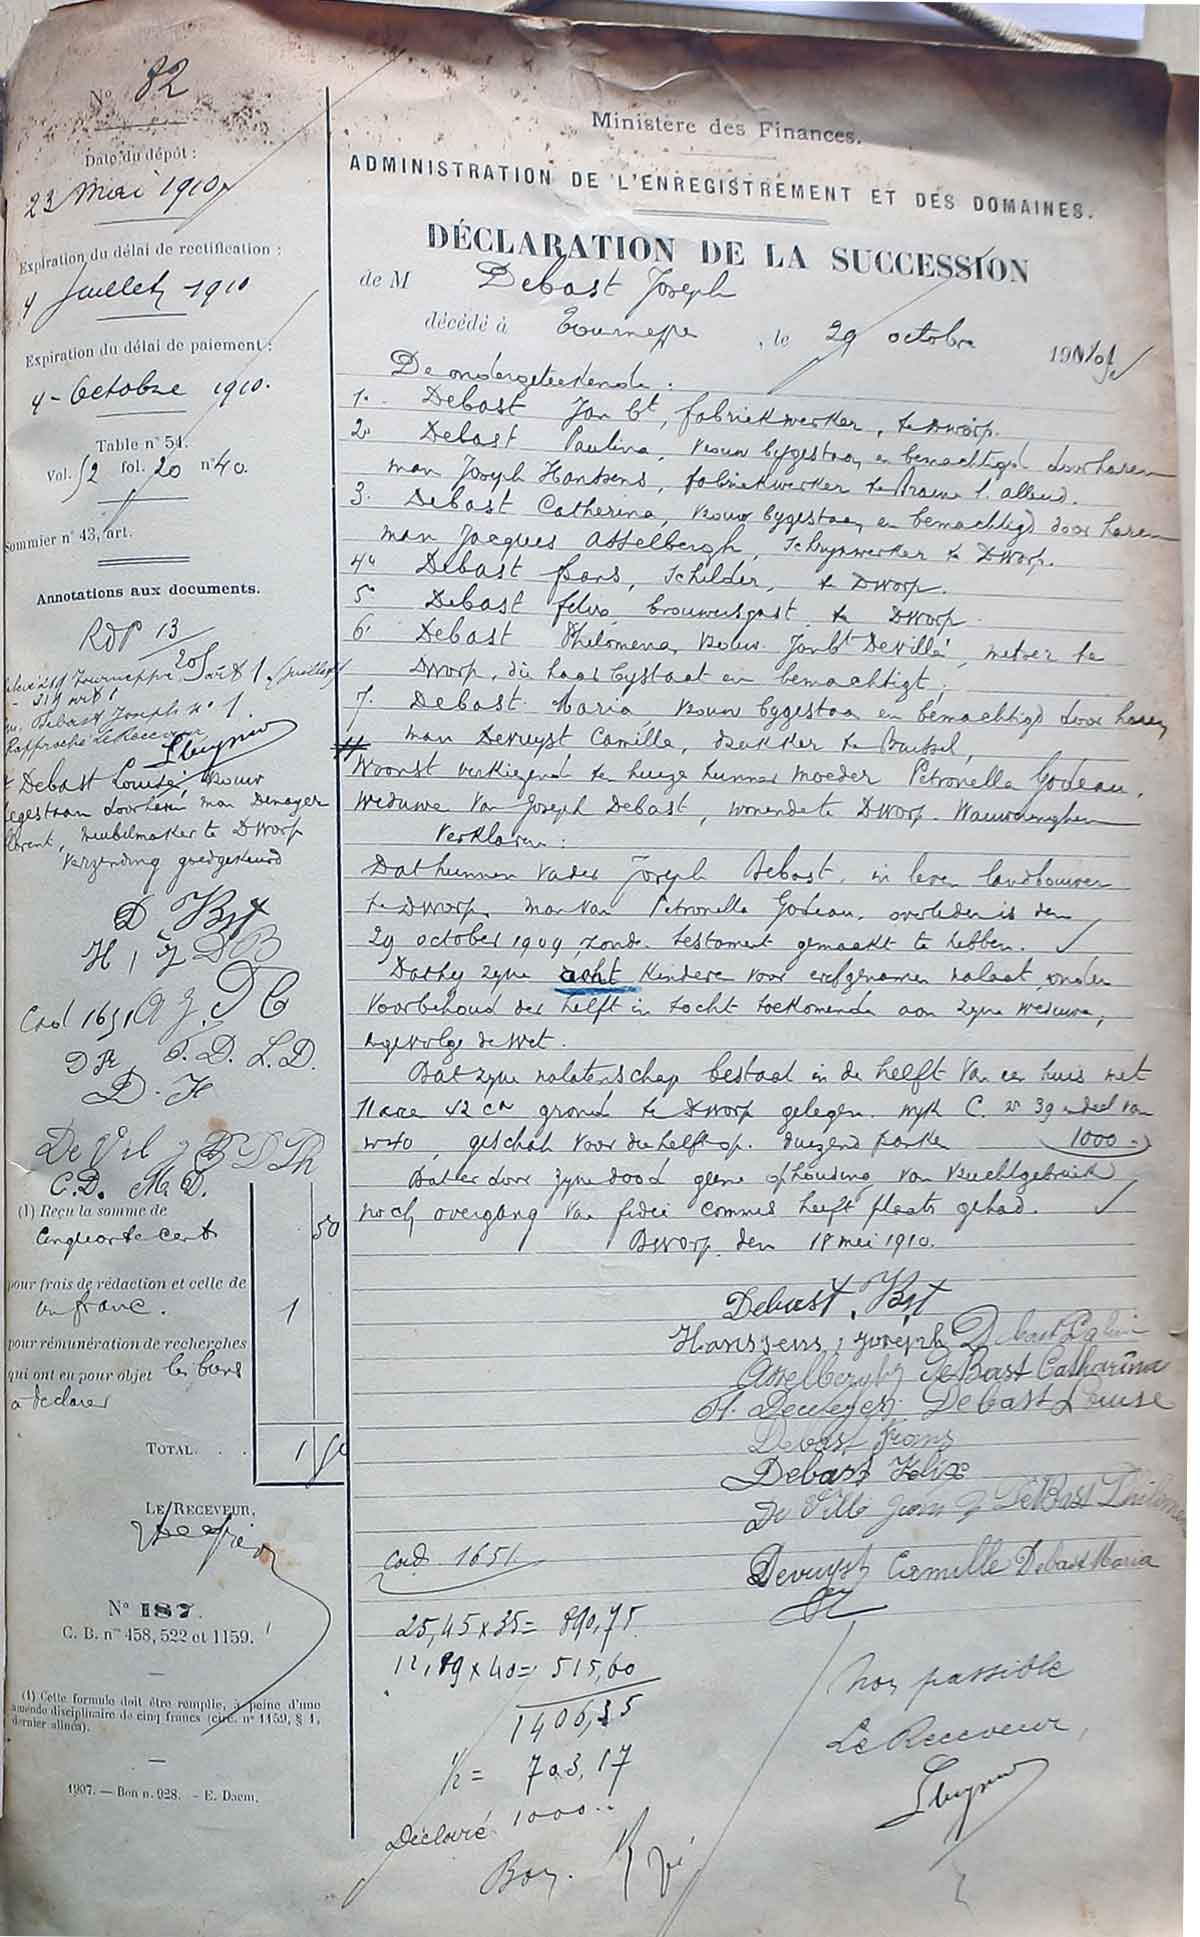 N° 82
Date du dépôt :
23 Mai 1910
Expiration du délai de rectification :
4 Juillet 1910
Expiration du délai de paiement :
4 - Octobre 1910.
Table n° 51.
Vol. 52 fol. 20 n° 40.
Sommier n° 43, art.
Annotations aux documents.
RDP 13
205
Tourneppe art 1
Debast Joseph n° 1.
Debast Louisa, vrouw
bygestaan door haren man Denayer
Florent, meubilmaker te Dworp
Verzending goedgekeurd
D. Bst
H, J DB
Cad 1651 A J. D C
D R F. D. L.D.
D. F
De Vil J B D Ph
C.D. M.D.
(1) Reçu la somme de
Cinquante cent 50
pour frais de rédaction et celle de
un franc. 1
pour rémunération de recherches
qui ont eu pour objet les biens
a declarer
TOTAL. . . 1 50
LE RECEVEUR,
N° 187.
C. B. nos 458, 522 et 1159.
(1) Cette formule doit être remplie, à peine d'une
amende disciplinaire de cinq francs (circ. n° 1159, § 1,
dernier alinéa).
1907. — Bon n. 928. - E. Daem.
Ministère des Finances.
ADMINISTRATION DE L'ENREGISTREMENT ET DES DOMAINES.
DÉCLARATION DE LA SUCCESSION
de M Debast Joseph
décédé à Tourneppe, le 29 octobre 190
De ondergeteekende :
1. Debast Jan Bt, fabriekwerker, te Dworp.
2. Debast Paulina, vrouw bygestaan en bemachtigd door haren
man Joseph Hanssens, fabriekwerker te Braine l. alleud.
3. Debast Catherina, vrouw bygestaan en bemachtigd door haren
man Jacques Asselbergh, schrynwerker te Dworp.
4. Debast frans, schilder, te Dworp.
5. Debast felix, brouwersgast te Dworp
6. Debast Philomena, vrouw Jan Bt Devillé, metser te
Dworp, die haar bystaat en bemachtigt,
7. Debast Maria, vrouw bygestaan en bemachtigd door haren
man Devuyst Camille, bakker te Brussel,
Woonst verkiezend te huize hunner moeder Petronella Godeau,
weduwe van Joseph Debast, wonende te Dworp
Verklaren :
Dat hunnen vader Joseph Debast, in leven landbouwer
te Dworp, man van Petronella Godeau, overleden is den
29 october 1909, zonder testament gemaakt te hebben.
Dat hy zyne acht kinderen voor erfgenamen nalaat, onder
voorbehoud der helft in tocht toekomende aan zyne weduwe,
ingevolge de wet.
Dat zyne nalatenschap bestaat in de helft van een huis met
11 are 42 ca grond te Dworp gelegen, wyk C. n° 39 en deel van
n° 40, geschat voor die helft op duizend franken 1000 -
Dat er door zyne dood geene ophouding van vruchtgebruik
noch overgang van fidei commis heeft plaats gehad.
Dworp, den 18 mei 1910.
Debast, Bst
Hanssens, joseph Debast Palina
Asselbergh DeBast Catharina
Debast Louise
Debast frans
Debast Felix
De Villé Jean DeBast Philomena
Devuyst Camille Debast Maria
Cad. 1651
25,45 x 35 = 890,75
12,89 x 40 = 515,60
1406,35
1/2 = 703,17
Déclaré 1000 --
Bon.
Non passible
Le Receveur,